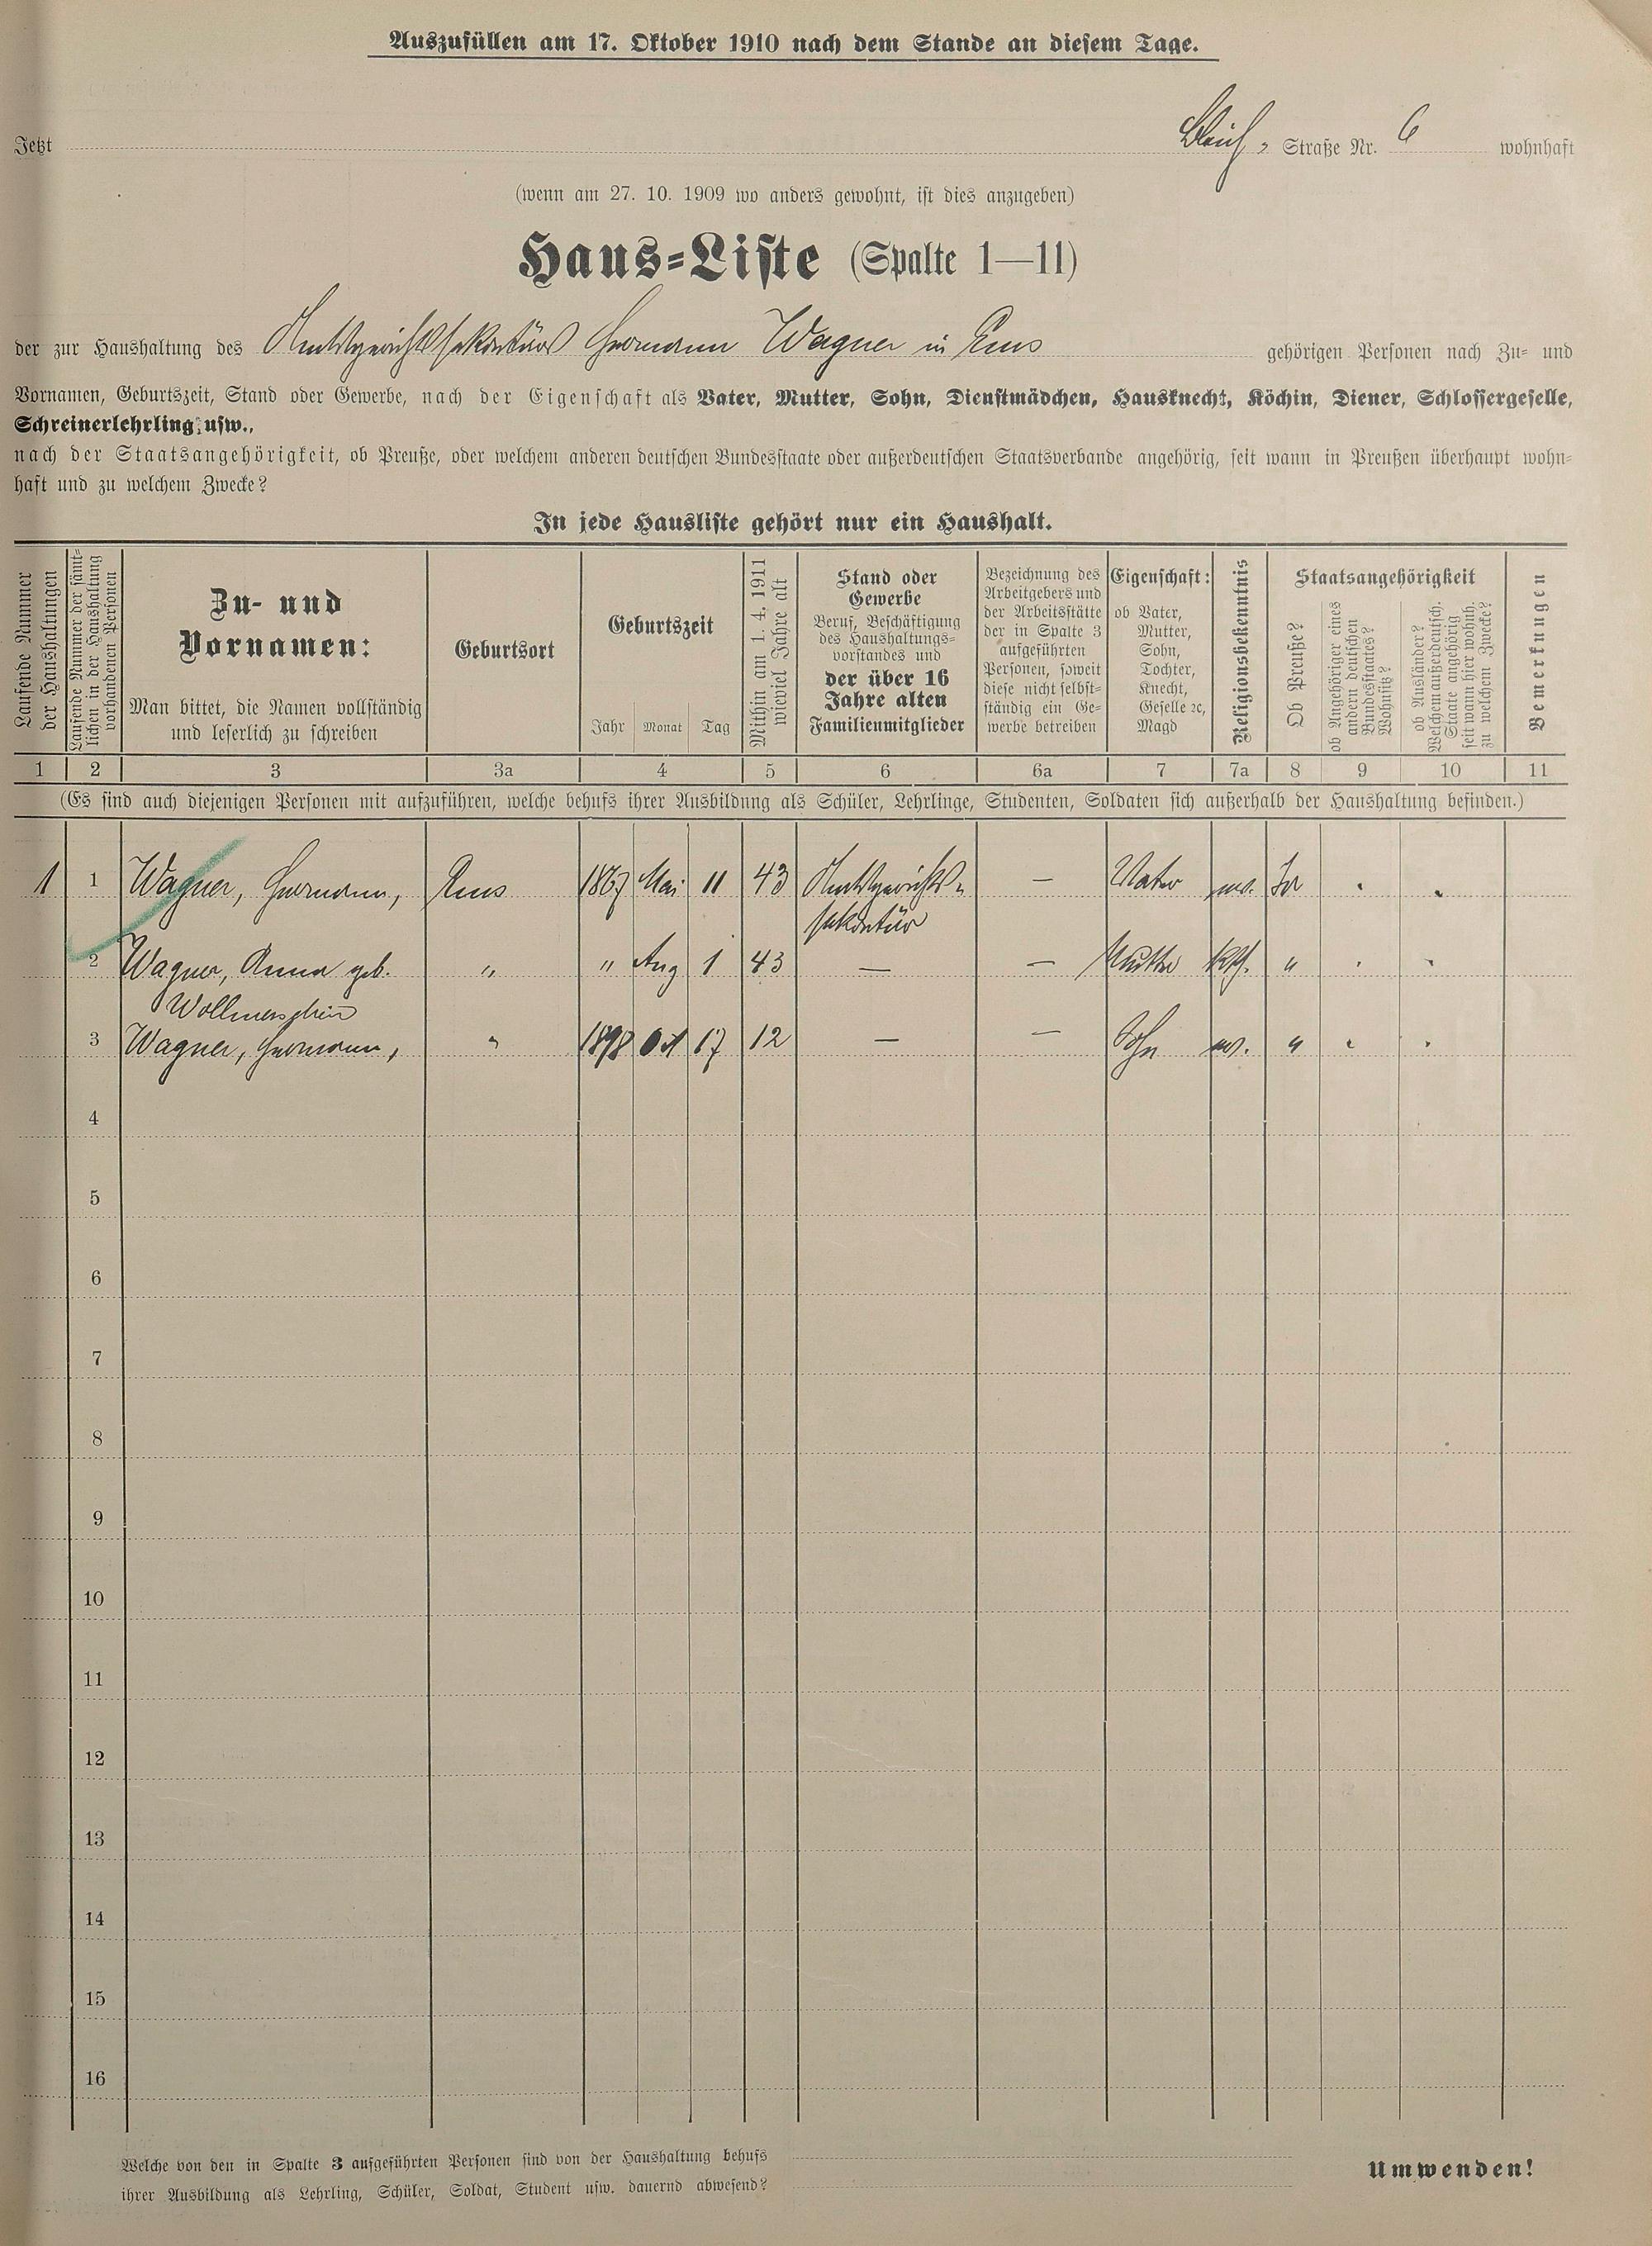 Auszufüllen am 17. Oktober 1910 nach dem Stande an diesem Tage.
Jetzt Straße Nr. 6 wohnhaft
(wenn am 27. 10. 1909 wo anders gewohnt, ist dies anzugeben)
Haus-Liste (Spalte 1—11)
der zur Haushaltung des Amtsgerichtssekretärs Hermann Wagner in Ems gehörigen Personen nach Zu- und
Vornamen, Geburtszeit, Stand oder Gewerbe, nach der Eigenschaft als Vater, Mutter, Sohn, Dienstmädchen, Hausknecht, Köchin, Diener, Schlossergeselle,
Schreinerlehrling usw.,
nach der Staatsangehörigkeit, ob Preuße, oder welchem anderen deutschen Bundesstaate oder außerdeutschen Staatsverbande angehörig, seit wann in Preußen überhaupt wohn-
haft und zu welchem Zwecke?
In jede Hausliste gehört nur ein Haushalt.
Laufende Nummer
der Haushaltungen
Laufende Nummer der sämt-
lichen in der Haushaltung
vorhandenen Personen
Zu- und
Vornamen:
Man bittet, die Namen vollständig
und leserlich zu schreiben
Geburtsort
Geburtszeit
Jahr Monat Tag
Mithin am 1. 4. 1911
wieviel Jahre alt
Stand oder
Gewerbe
Beruf, Beschäftigung
des Haushaltungs-
vorstandes und
der über 16
Jahre alten
Familienmitglieder
Bezeichnung des
Arbeitgebers und
der Arbeitsstätte
der in Spalte 3
aufgeführten
Personen, soweit
diese nicht selbst-
ständig ein Ge-
werbe betreiben
Eigenschaft:
ob Vater,
Mutter,
Sohn,
Tochter,
Knecht,
Geselle ꝛc,
Magd
Religionsbekenntnis
Staatsangehörigkeit
Ob Preuße?
ob Angehöriger eines
andern deutschen
Bundesstaates?
Wohnsitz?
ob Ausländer?
Welchem außerdeutsch.
Staate angehörig
seit wann hier wohnh.
zu welchem Zwecke?
Bemerkungen
1 2 3 3a 4 5 6 6a 7 7a 8 9 10 11
(Es sind auch diejenigen Personen mit aufzuführen, welche behufs ihrer Ausbildung als Schüler, Lehrlinge, Studenten, Soldaten sich außerhalb der Haushaltung befinden.)
1 1 Wagner, Hermann, Ems 1867 Mai 11 43 Amtsgerichts- — Vater ev. Ja
sekretär
2 Wagner, Anna geb. " " Aug 1 43 — — Mutter kth. "
3 Wagner, Hermann, " 1898 Okt 17 12 — — Sohn ev. "
4
5
6
7
8
9
10
11
12
13
14
15
16
Welche von den in Spalte 3 aufgeführten Personen sind von der Haushaltung behufs
ihrer Ausbildung als Lehrling, Schüler, Soldat, Student usw. dauernd abwesend?
Umwenden!